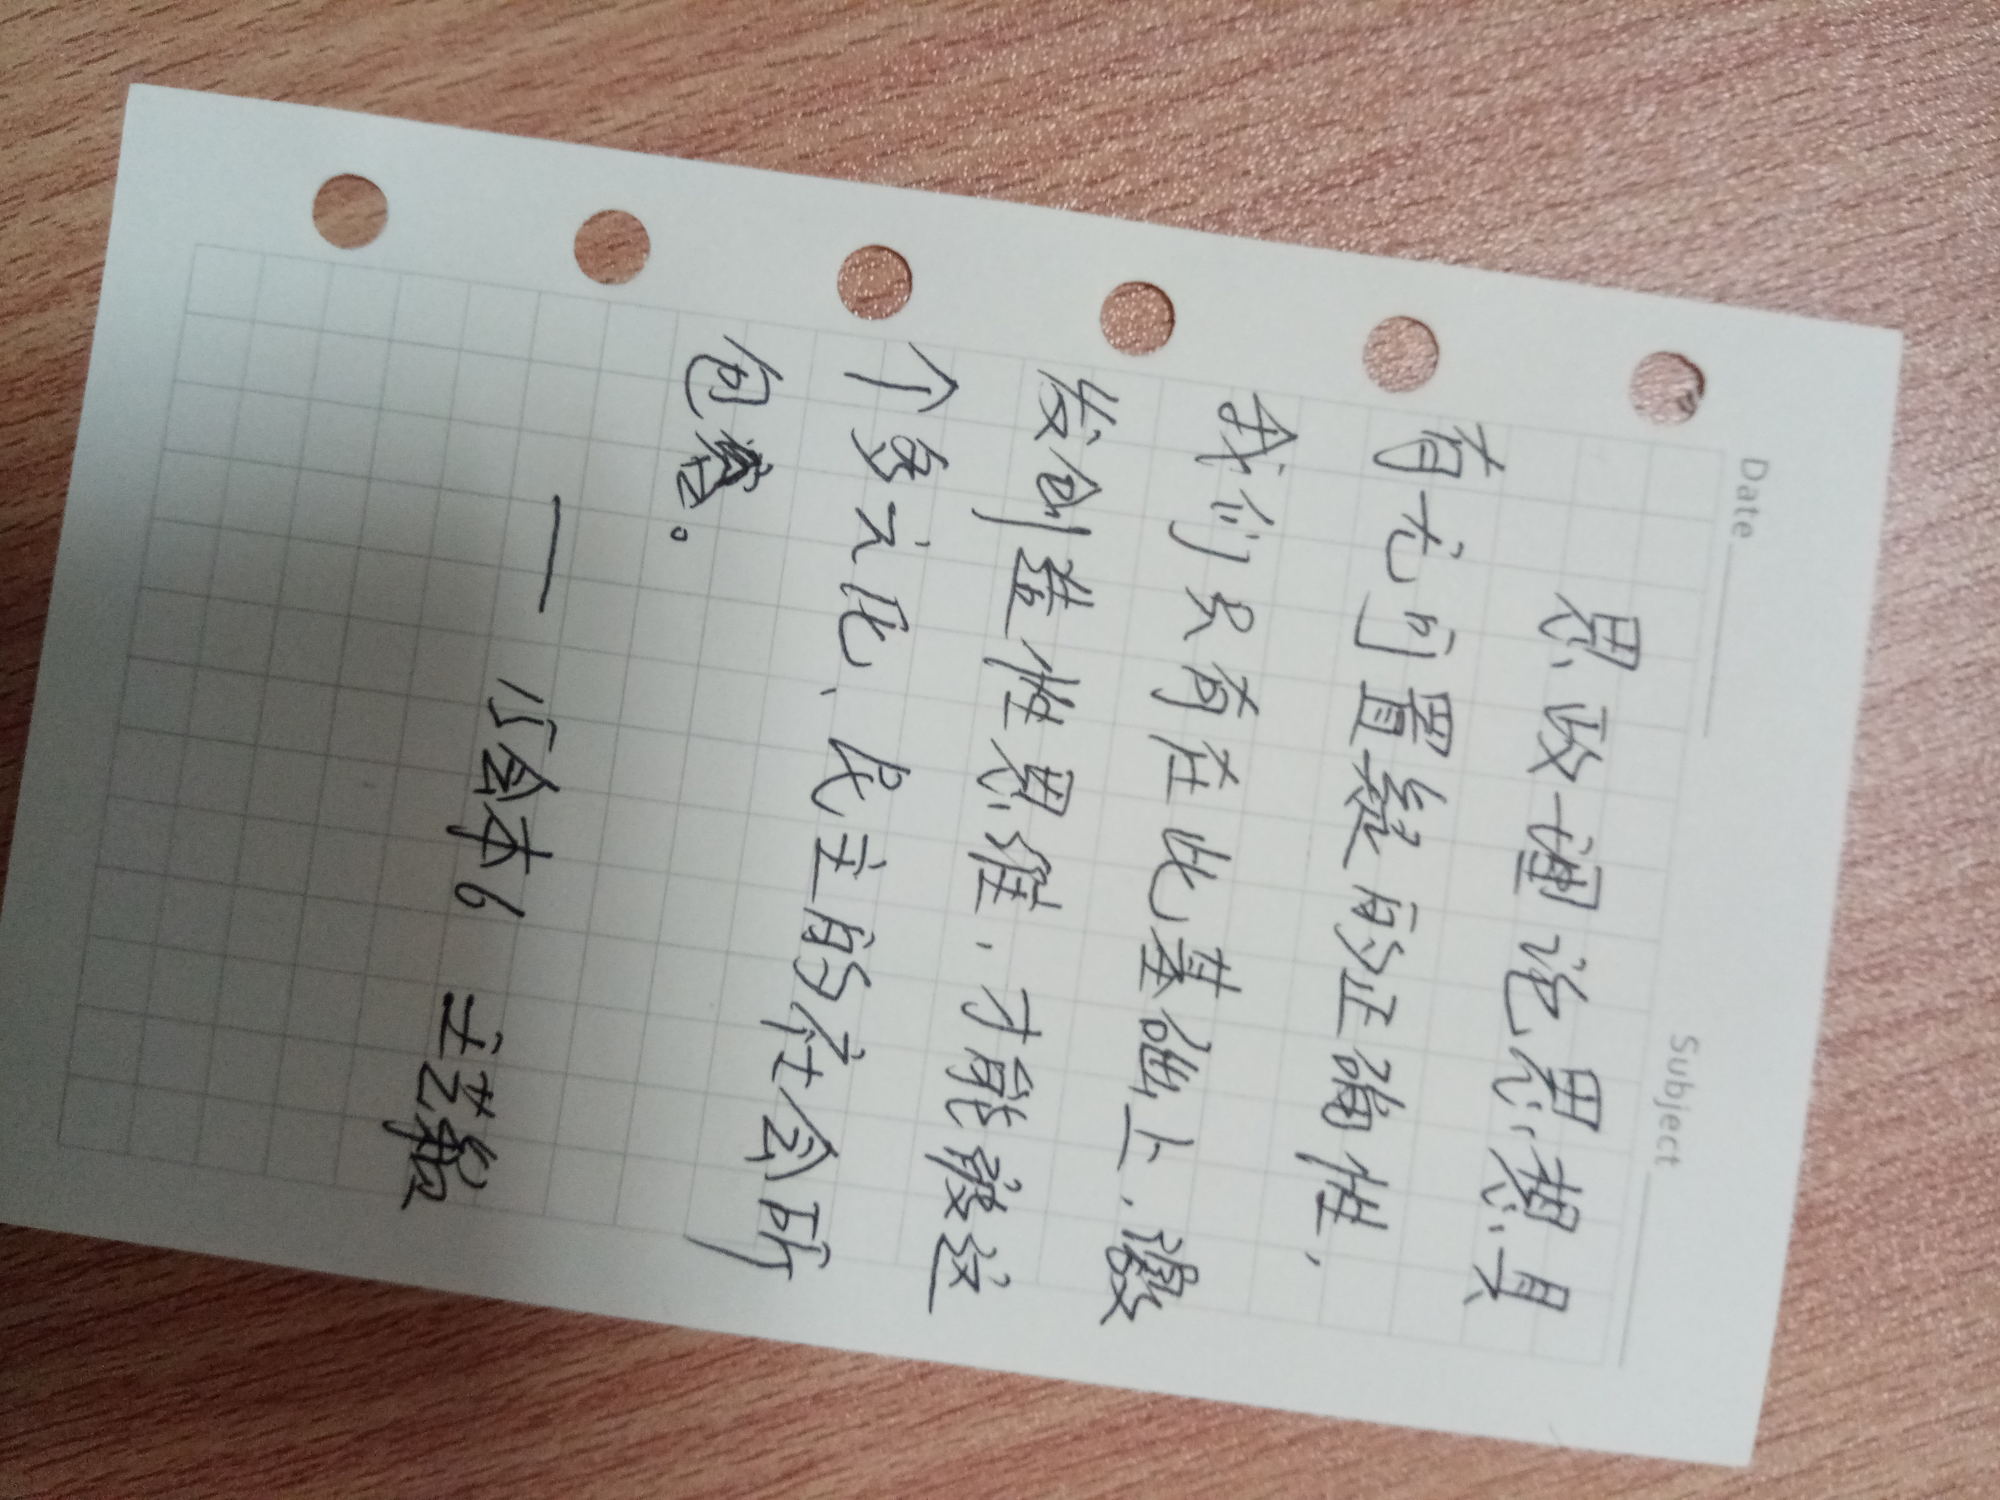 Date
Subject
思政课论思想具
有无可置疑的正确性，
我们只有在此基础上，激
发创造性思维，才能被这
个多元化、民主的社会所
包容。
— 15会本6